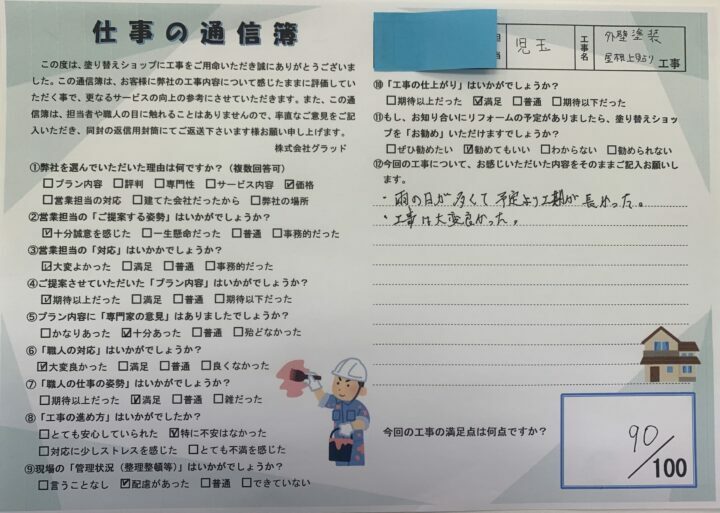 仕事の通信簿
この度は、塗り替えショップに工事をご用命いただき誠にありがとうございま
した。この通信簿は、お客様に弊社の工事内容について感じたままに評価してい
ただく事で、更なるサービスの向上の参考にさせていただきます。また、この通
信簿は、担当者や職人の目に触れることはありませんので、率直なご意見をご記
入いただき、同封の返信用封筒にてご返送下さいます様お願い申し上げます。
株式会社グラッド
①弊社を選んでいただいた理由は何ですか?(複数回答可)
□プラン内容 □評判 □専門性 □サービス内容 ☑価格
□営業担当の対応 □建てた会社だったから □弊社の場所
②営業担当の「ご提案する姿勢」はいかがでしょうか?
☑十分誠意を感じた □一生懸命だった □普通 □事務的だった
③営業担当の「対応」はいかかでしょうか?
☑大変よかった □満足 □普通 □事務的だった
④ご提案させていただいた「プラン内容」はいかがでしょうか?
☑期待以上だった □満足 □普通 □期待以下だった
⑤プラン内容に「専門家の意見」はありましたでしょうか?
□かなりあった ☑十分あった □普通 □殆どなかった
⑥「職人の対応」はいかがでしょうか?
☑大変良かった □満足 □普通 □良くなかった
⑦「職人の仕事の姿勢」はいかがでしょうか?
□期待以上だった ☑満足 □普通 □雑だった
⑧「工事の進め方」はいかがでしたか?
□とても安心していられた ☑特に不安はなかった
□対応に少しストレスを感じた □とても不満を感じた
⑨現場の「管理状況(整理整頓等)」はいかがでしょうか?
□言うことなし ☑配慮があった □普通 □できていない
児玉
工事名
外壁塗装
工事
⑩「工事の仕上がり」はいかがでしょうか?
□期待以上だった ☑満足 □普通 □期待以下だった
⑪もし、お知り合いにリフォームの予定がありましたら、塗り替えショッ
プを「お勧め」いただけますでしょうか?
□ぜひ勧めたい ☑勧めてもいい □わからない □勧められない
⑫今回の工事について、お感じいただいた内容をそのままご記入お願いし
ます。
・雨の日が多くて予定より工期が長かった。
・工事は大変良かった。
今回の工事の満足点は何点ですか?
90/100